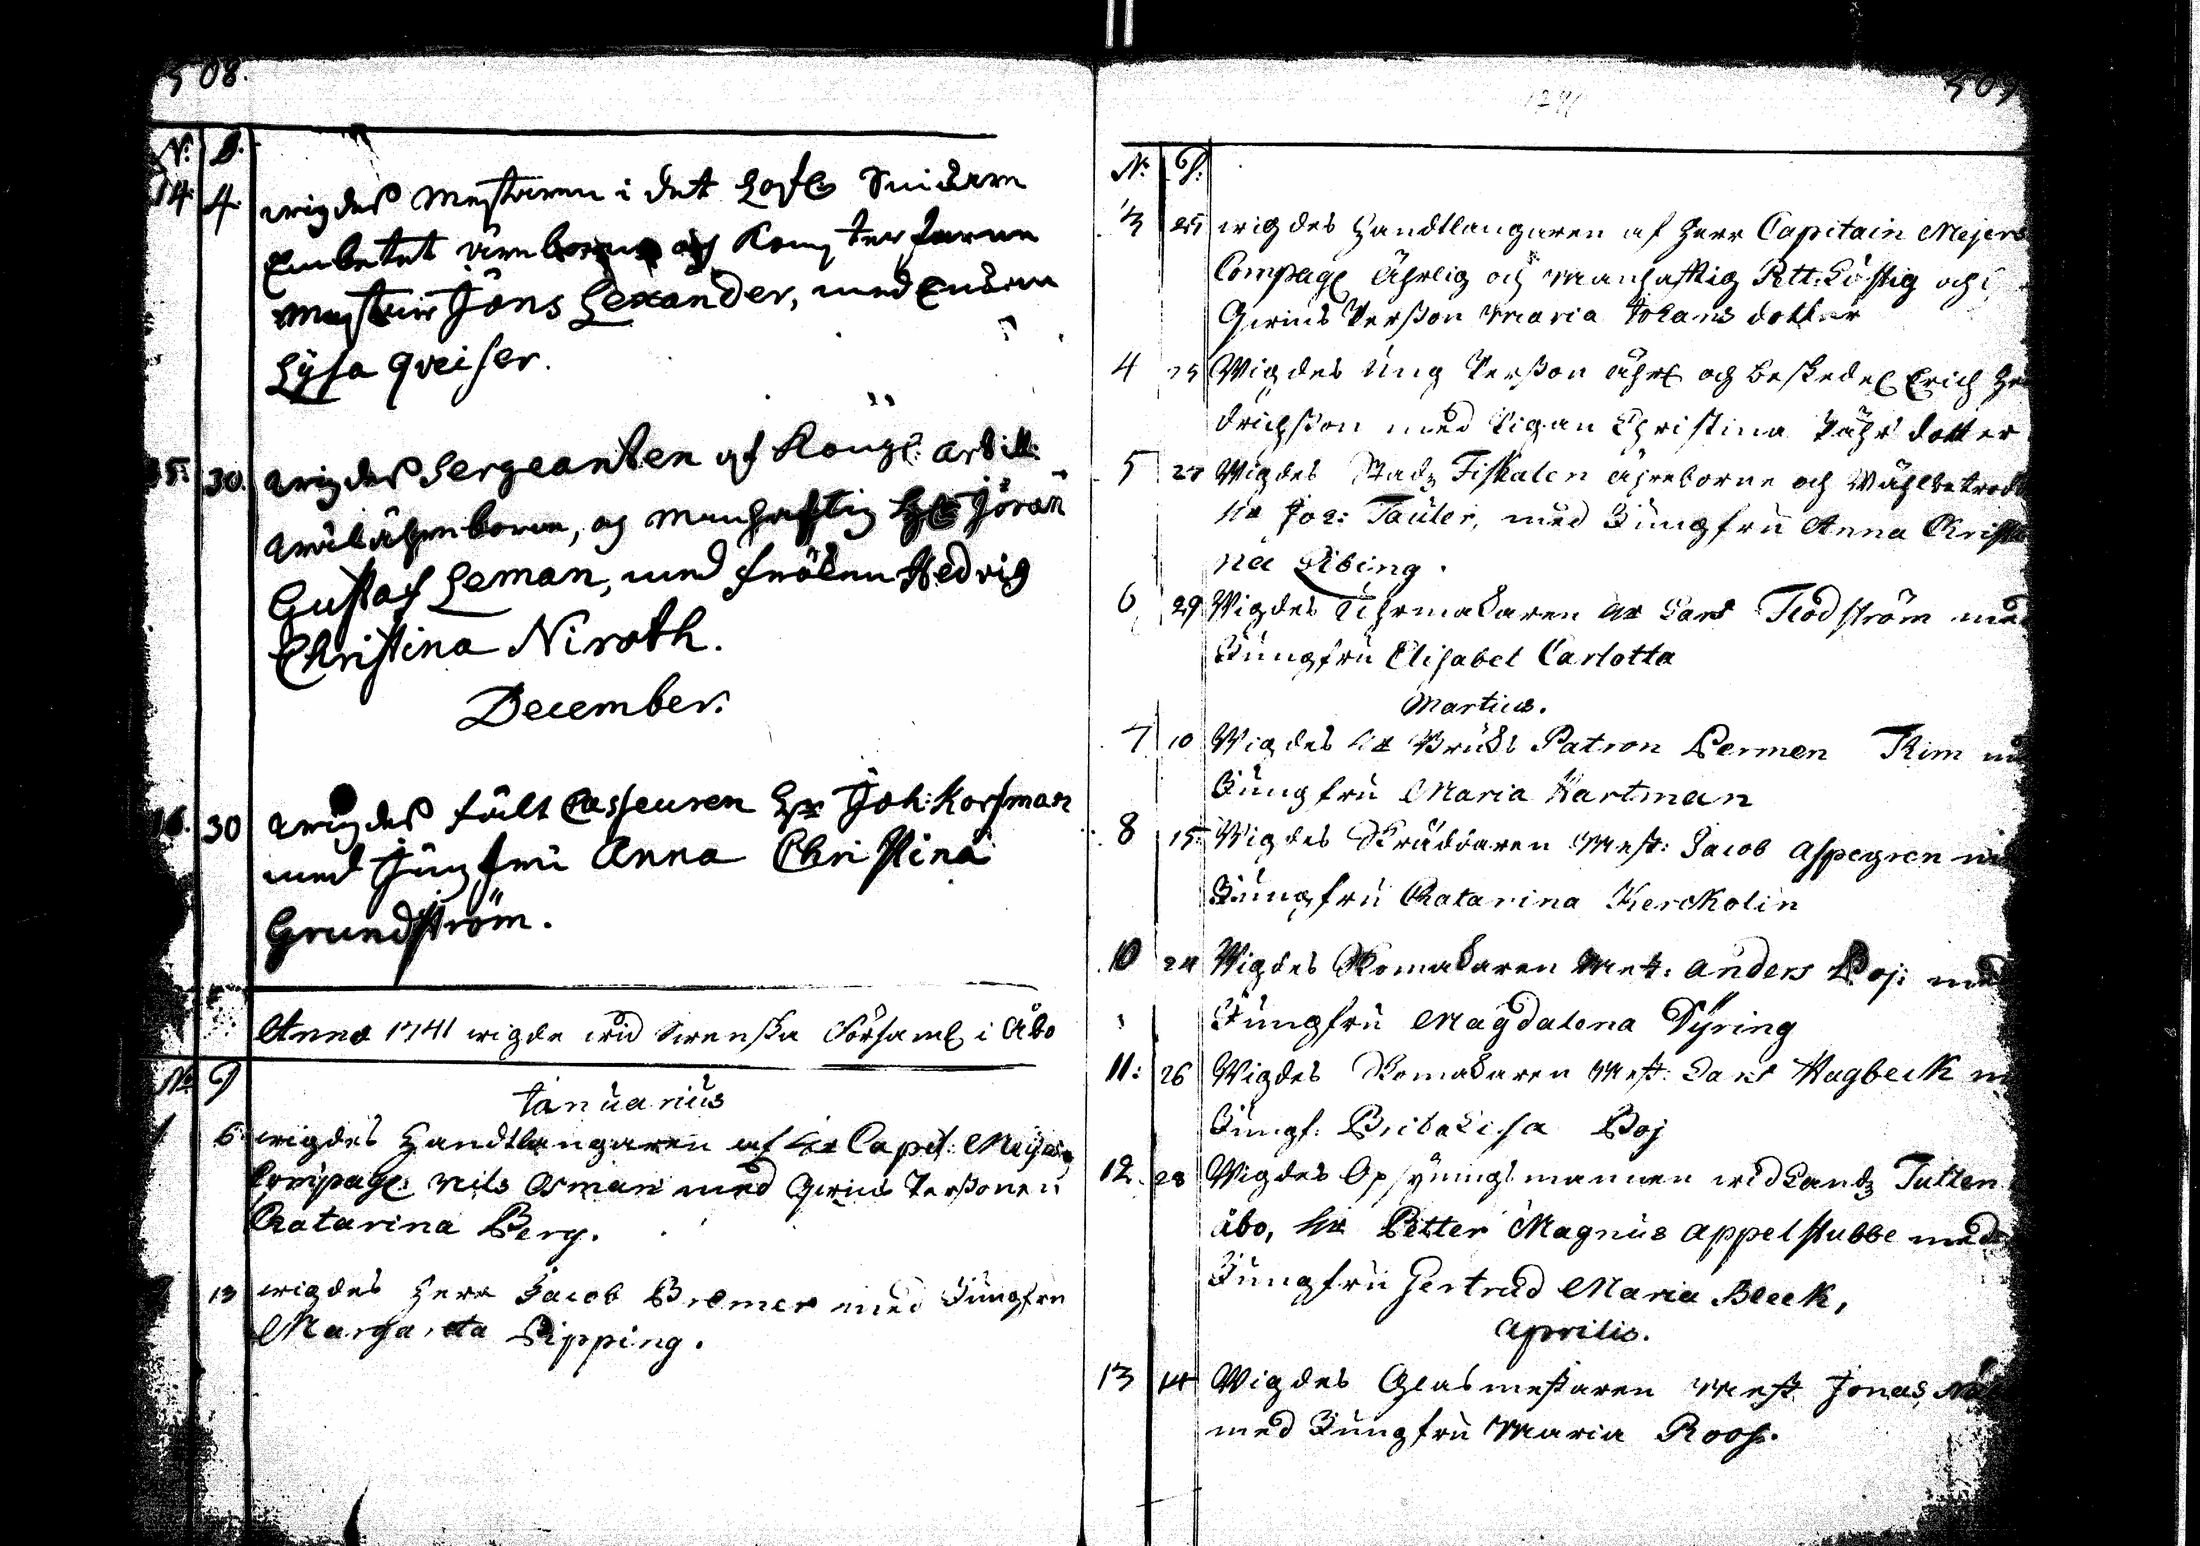 508.
N: D.
14. 4. wigdes Mestaren i det Lofl. Snidare
Embetet ärenborne och Konsterfarne
Mester Jöns Lexander, med Enckan
Lÿsa Qveiser.
15. 30. wigdes Sergeanten af Kongl: Artill:
wälährenborne, og Manhaftig Hr Jöran
Gustaf Leman, med fröken Hedvig
Christina Niroth.
December.
16. 30 wigdes fält Casseuren Hr Joh: Korsman
med Jungfru Anna Christina
Grundström.
Anno 1741 wigde wid Swenska Församl i Åbo
No D
Januarius
1 6. wigdes Handtlangaren af Hr Capit: Meijers
Compagl: Nils Osman med Qwins Personen
Catarina Berg.
13 wigdes Herr Jacob Bremer med Jungfru
Margareta Pipping.
509
1741
N: D.
3 25 wigdes Handtlangaren af Herr Capitain Mejers
Compagl Ährlig och Manhafftig Pett: Löstig och
Qwins Person Maria Johans dotter
4 25 Wigdes Ung Person ährl och beskedel Erich Hen
drichsson med Pigan Christina Pährs dotter
5 27 Wigdes Stadz Fiskalen ähreborne och Wählbetrodde
Hr Joh: Tauler, med Jungfru Anna Christi
na Ribing.
6 29 Wigdes Uhrmakaren Hr Lars Flodström med
Jungfru Elisabet Carlotta
Martius.
7 10 Wigdes Hr Bruks Patron Bermen Kim med
Jungfru Maria Hartman
8 15. Wigdes Skräddaren Mest: Jacob Aspegren med
Jungfru Catarina Kerckolin
10 24 Wigdes Skomakaren Mest: Anders Boj: med
Jungfru Magdalena Dÿring
11: 26 Wigdes Skomakaren Mest: Lars Hagbeck m
Jungf: Brita Lisa Boj
12. 28 Wigdes Opsÿningsmannen wid Landz Tullen
Åbo, Hr Petter Magnus Appelstubbe med
Jungfru Gertrud Maria Bleck,
Aprilis.
13 14 Wigdes Glasmestaren Mest. Jonas
med Jungfru Maria Roos.